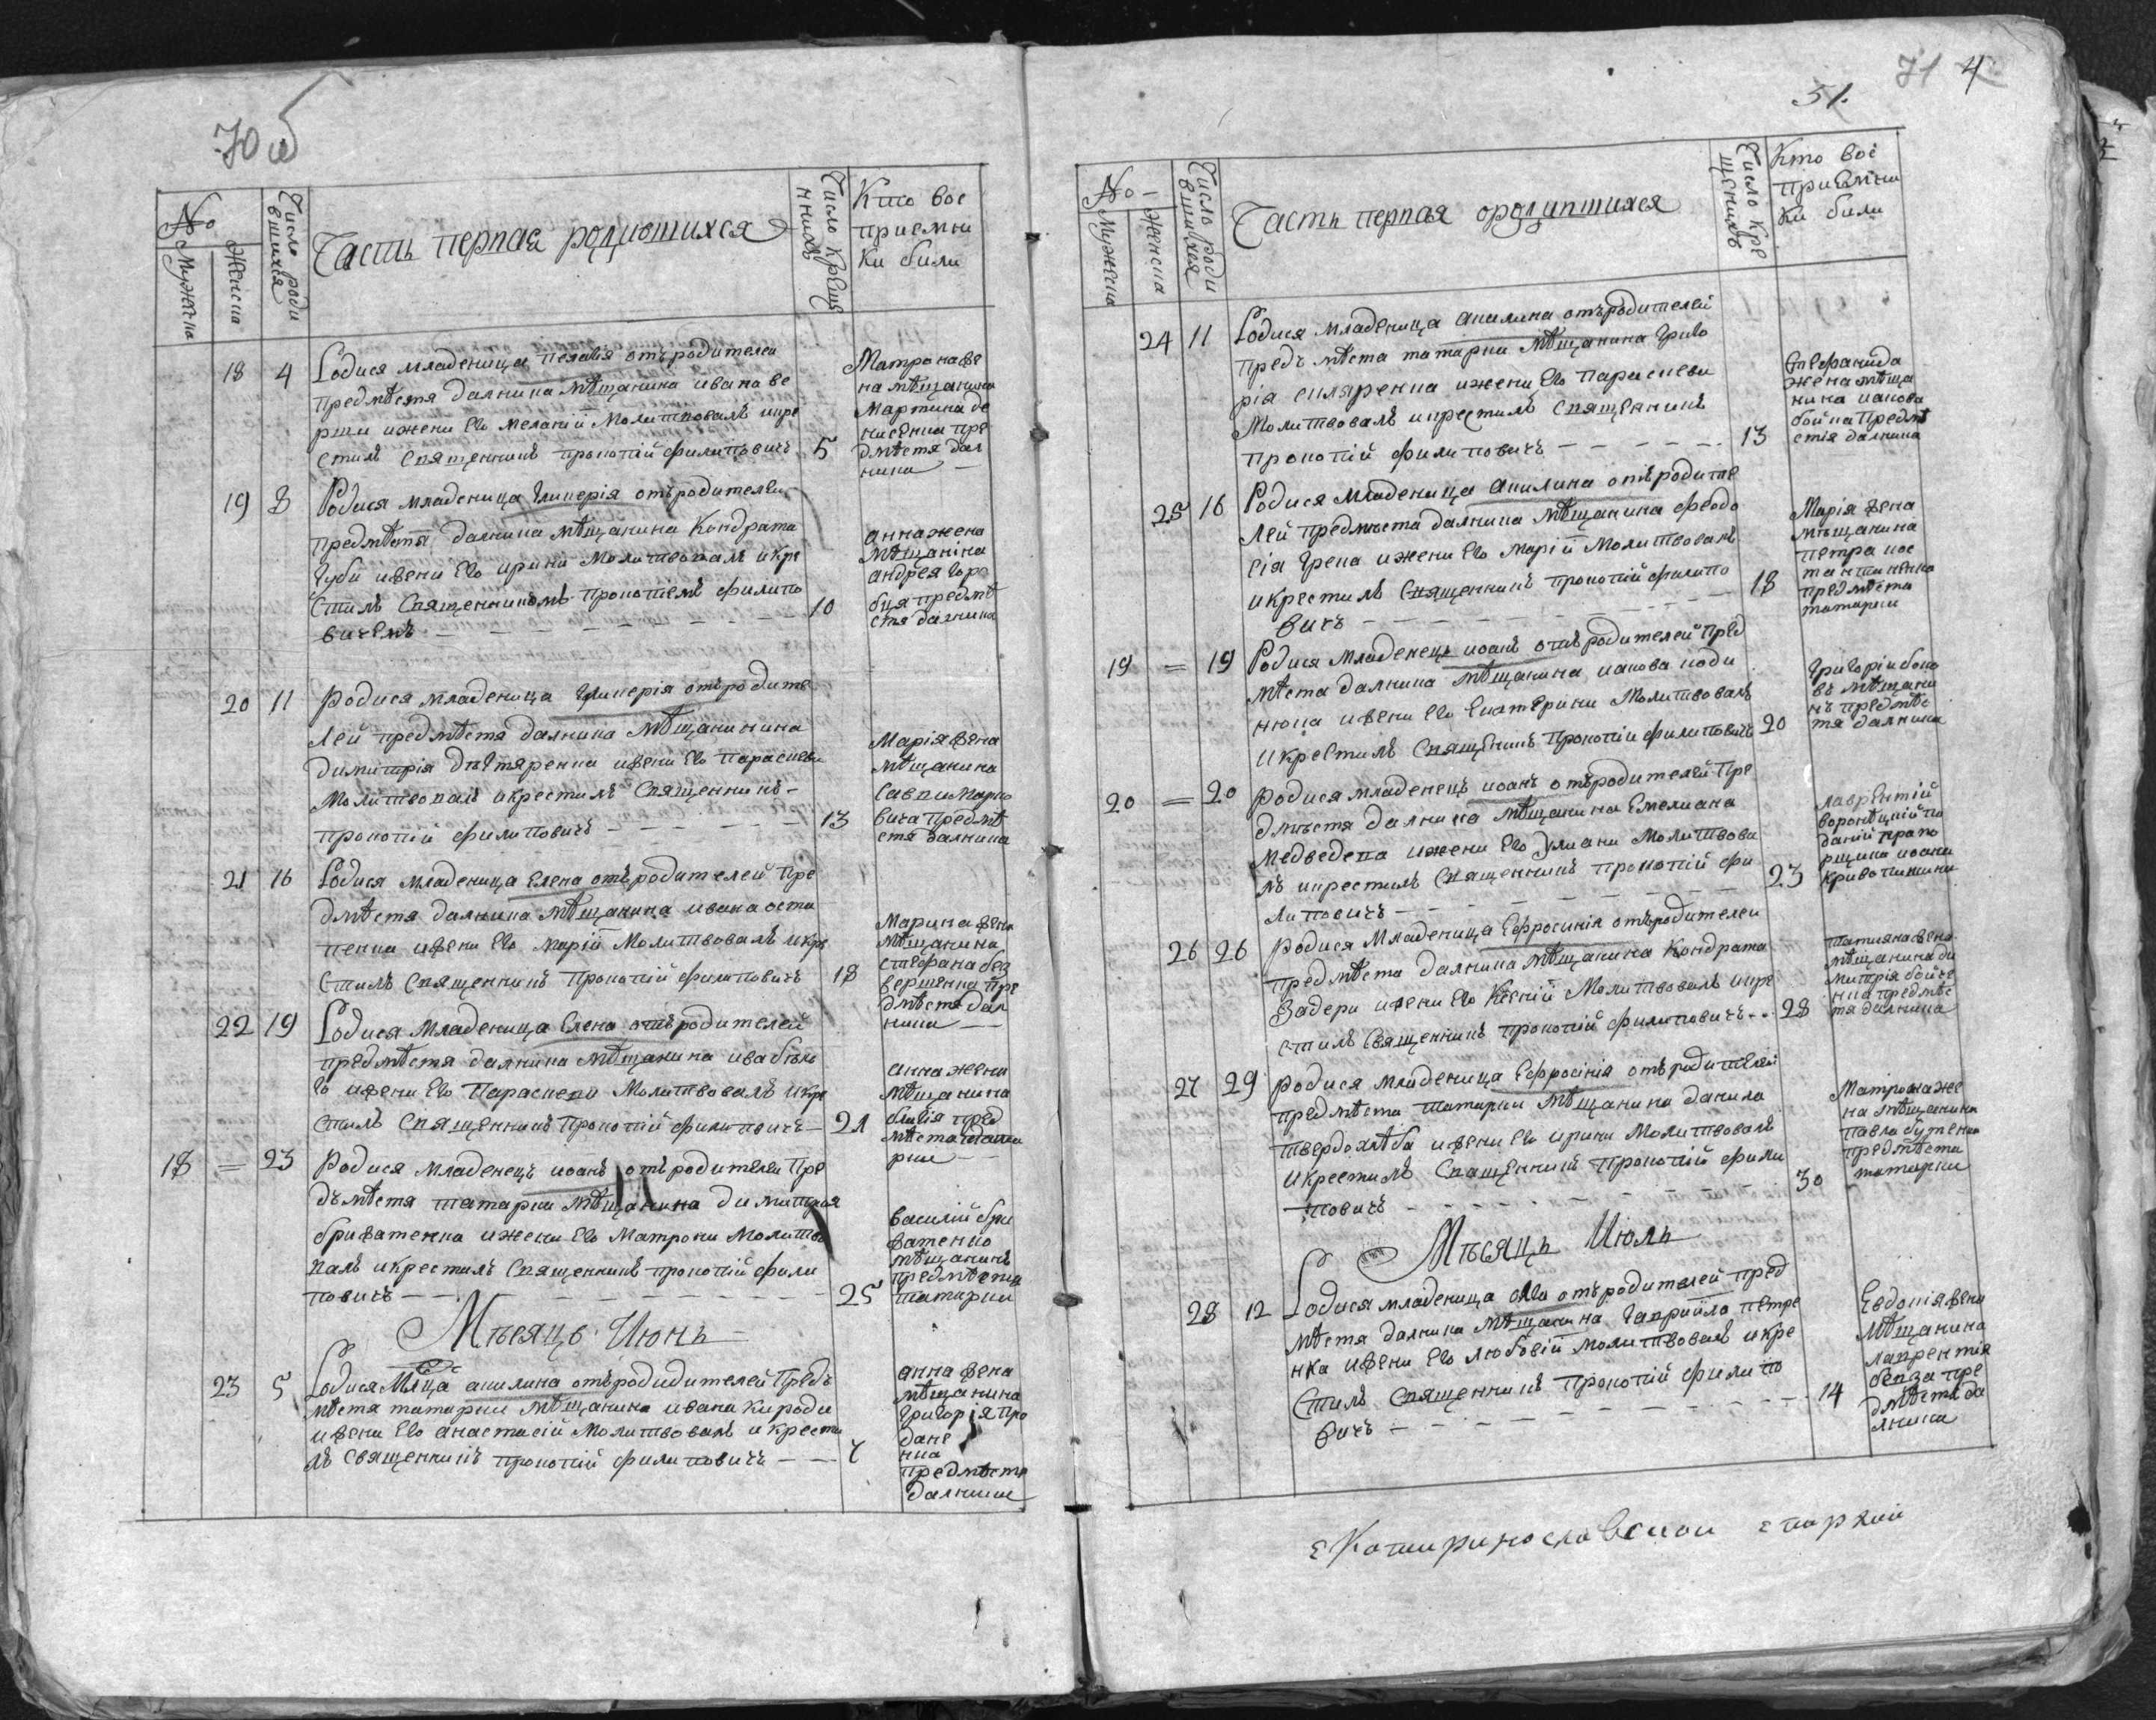 70 об
No
Мужеска
Женска
Число роди
вшихся
Часть первая родившихся
Число Крещ
нних
Кто вос
приемни
ки били
18 4 Родися младеница пелагія отъ родителей
предмѣстя далника мѣщанина ивана ве
рши и жени его меланіи Молитвовалъ и кре
стилъ священникъ прокопій филиповичъ 5
Матрона же
на мѣщанина
Мартина де
нисенка пре
дмѣстя дал
ника
19 8 Родися младеница гликерія отъ родителей
предмѣстя далника мѣщанина Кондрата
губи и жени его ирини Молитвовалъ и кре
стилъ священникомъ прокопіемъ филипо
вичемъ 10
анна жена
мѣщаніна
андрея гор
бця предмѣ
стя далника
20 11 Родися младеница гликерія отъ родите
лей предмѣстя далника мѣщанинина
димитрія дѣгтяренка и жени его параскеви
молитвовалъ и крестилъ священникъ
прокопій филиповичъ 13
Марія жена
мѣщанина
савви марко
вича предмѣ
стя далника
21 16 Родися младеница елена отъ родителей пре
дмѣстя далника мѣщанина ивана оста
пенка и жени его маріи Молитвовалъ и кре
стилъ священникъ прокопій филиповичъ 18
Марина жена
мѣщанина
стефана без
вершенка пре
дмѣстя дал
ника
22 19 Родися младеница елена отъ родителей
предмѣстя далника мѣщанина ива бѣло
го и жени его параскеви Молитвовалъ и кре
стилъ священникъ прокопій филиповичъ 21
анна жена
мѣщанина
предъ
мѣста тата
рки
18 = 23 Родися младенецъ иоанъ отъ родителей пре
дъмѣстя татарки мѣщанина димитрія
бриватенка и жени его Матрони молитво
валъ и крестилъ священникъ прокопій фили
повичъ 25
василій бри
ватенко
мѣщанинъ
предмѣстя
татарки
Мѣсяцъ Июнь
23 5 Родися Мл҃ца акилина отъ родидителей предъ
мѣстя татарки мѣщанина ивана кироди
и жени его анастасіи Молитвовалъ и крести
лъ священникъ прокопій филиповичъ 7
анна жена
мѣщанина
григорія про
дане
нка
предмѣстя
далники
71 4
51.
No
Мужеска
Женска
Число роди
вшихся
Часть первая ородившихся
Число Кре
щенихъ
Кто вос
приемни
ки били
24 11 Родися младеница акилина отъ родителей
предъмѣста татарки мѣщанина григо
рія скляренка и жени его параскеви
Молитвовалъ и крестилъ священикъ
прокопій филиповичъ 13
Стефанида
жена мѣща
нина иакова
бойка предмѣ
стія далника
25 16 Родися младеница акилина отъ родите
лей предмѣста далника мѣщанина феодо
сія грека и жени его маріи Молитвовалъ
и крестилъ священникъ прокопій филипо
вичъ 18
Марія жена
мѣщанина
петра кос
тантиненка
предмѣста
татарки
19 = 19 Родися младенецъ иоанъ отъ родителей пред
мѣста далника мѣщанина иакова коди
нюка и жени его екатерини Молитвовалъ
и крестилъ священикъ прокопіи филиповичъ 20
Григоріи боко
въ мѣщани
нъ предмѣс
тя далника
20 = 20 Родися младенецъ иоанъ отъ родителей пре
дмѣстя далника мѣщанина Емелиана
медведева и жени его улиани Молитвова
лъ и крестилъ священникъ прокопій фи
липовичъ 23
лаврентій
воронѣцкій по
даній прапо
рщика иоана
кривопишина
26 26 Родися младеница Ефросинія отъ родителей
предмѣста далника мѣщанина Кондрата
задери и жени его Ксеніи Молитвовалъ и кре
стилъ священникъ прокопій филиповичъ 28
татияна жена
мѣщанина ди
митрія бойче
нка предмѣс
тя далника
27 29 Родися младеница Ефросінія отъ родителей
предмѣста татарки мѣщанина данила
твердохлѣба и жени его ирини Молитвовалъ
и крестилъ священникъ прокопій фили
повичъ 30
Матрона же
на мѣщанина
павла бутенка
предмѣста
татарки
Мѣсяць Июль
28 12 Родися младеница отъ родителей пред
мѣстя далника мѣщанина гавриило петре
нка и жени его любовіи молитвовалъ и кре
стилъ священникъ прокопій филипо
вичъ 14
Евдокія жена
мѣщанина
лаврентія
пре
дмѣстя да
лника
Екатиринославской епархии